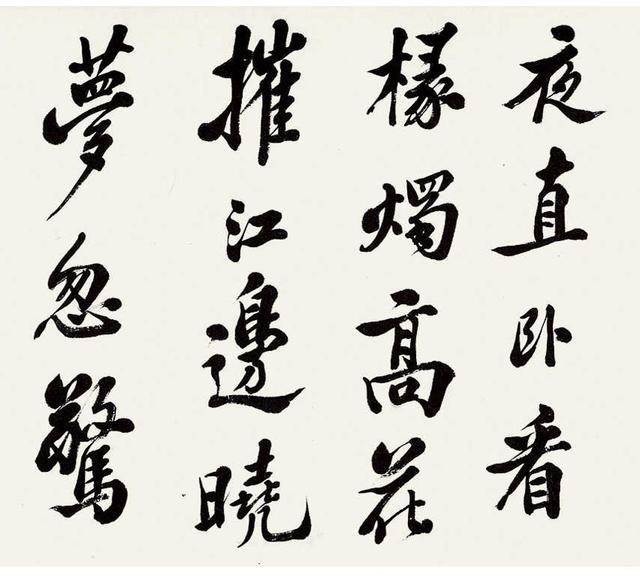 夜直卧看
椽燭高花
摧江邊曉
夢忽驚